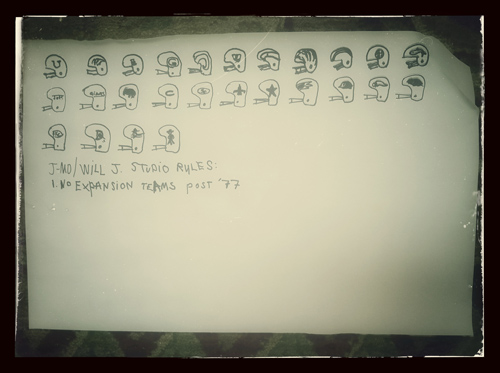 U
G
C
GIANTS
J-MO/WILL J. STUDIO RULES:
1. NO EXPANSION TEAMS POST '77